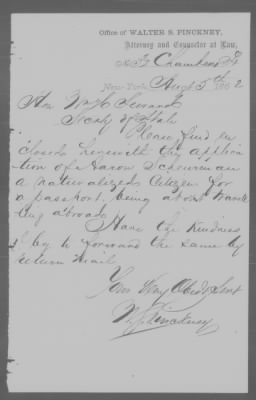 Office of WALTER S. PINCKNEY,
Attorney and Counselor at Law,
Chambers St
New-York, Augt 5th 1862
Hon Wm H Seward
Secty of State
Please find en
closed herewith the applica
tion of Aaron Scheurman
a naturalized Citizen for
a passport, being about travel
ing abroad
Have the kindness
by to forward the same by
return Mail
Yours Very Obedt Servt
W. S. Pinckney